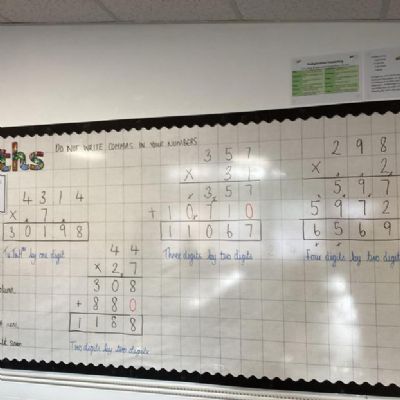 ths
DO NOT WRITE COMMAS IN YOUR NUMBERS
4 3 1 4
x 7
3 0 1 9 8
by one digit
4 4
x 2 7
3 0 8
+ 8 8 0
1 1 8 8
Two digits by two digits
3 5 7
x 3 1
3 5 7
+ 1 0 7 1 0
1 1 0 6 7
Three digits by two digits
2 9 8
x 2
5 9 7
5 9 7 2
6 5 6 9
Four digits by two digit